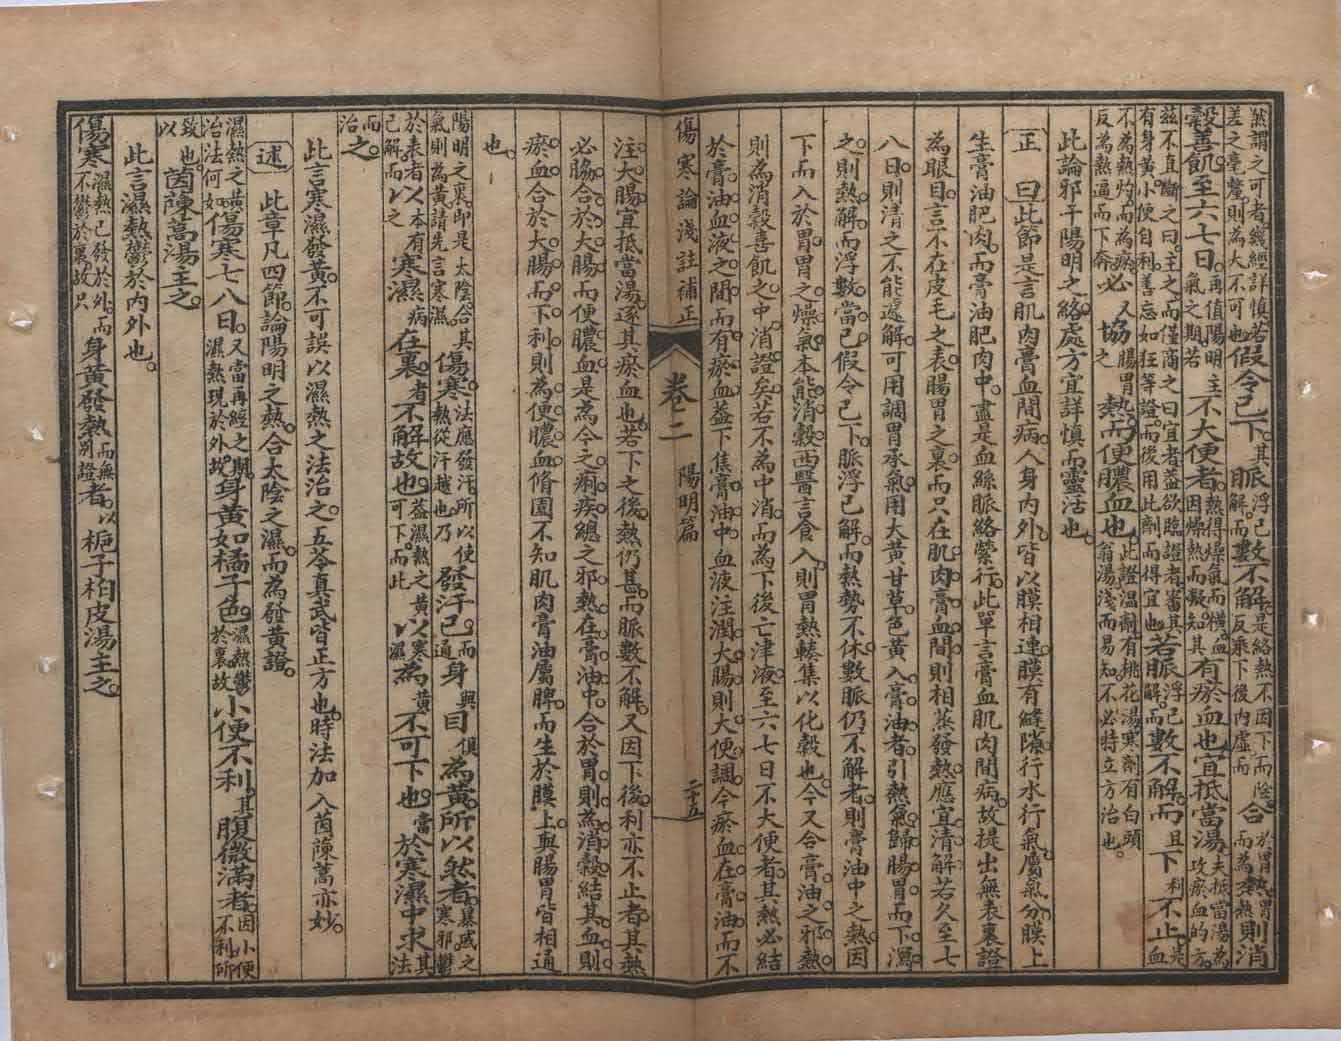 然謂之可者幾經詳慎若差之毫釐則為大不可也假令已下。其脈浮已解而數不解是絡熱不因下而陰反乘下後內虛而合於胃熱胃而為熱熱則消
穀善飢至六七日。再值陽明主氣之期若不大便者。熱得燥氣而橫血因燥熱而凝知其有瘀血也宜抵當湯。夫抵當湯為攻瘀血的方
茲不直斷之曰主之而僅商之曰宜者蓋欲臨證者審其有身黃小便自利善忘如狂等證而後用此劑而得宜也若脈浮已解而數不解。而且下利不止。是血
不為熱灼而為瘀又反為熱逼而下奔必協腸胃之熱而便膿血也。此證溫劑有桃花湯寒劑有白頭翁湯淺而易知不必特立方治也。
此論邪干陽明之絡處方宜詳慎而靈活也。
正 曰此節是言肌肉膏血間病。人身內外皆以膜相連膜有縫隙行水行氣屬氣分膜上
生膏油肥肉。而膏油肥肉中。盡是血絲脈絡縈行。此單言膏血肌肉間病。故提出無表裏證
為眼目。言不在皮毛之表。腸胃之裏而只在肌肉膏血間則相蒸發熱應宜清解若久至七
八日。則清之不能遽解。可用調胃承氣用大黃甘草。色黃入膏油者。引熱氣歸腸胃而下洩
之。則熱解而浮數當已。假令已下。脈浮已解。而熱勢不休。數脈仍不解者。則膏油中之熱因
下而入於胃。胃之燥氣本能消穀西醫言食入。則胃熱輳集以化穀也。今又合膏油之邪熱
則為消穀喜飢之中消證矣。若不為中消而為下後亡津液至六七日不大便者。其熱必結
於膏油血液之間而有瘀血蓋下焦膏油中血液注潤大腸則大便調今瘀血在膏油而不
傷寒論淺註補正 卷二 陽明篇 二十五
注大腸宜抵當湯逐其瘀血也。若下之後熱仍甚而脈數不解。又因下後利亦不止者。其熱
必脇合於大腸而便膿血是為今之痢疾總之邪熱在膏油中。合於胃則為消穀結其血則
瘀血合於大腸而下利。則為便膿血脩園不知肌肉膏油屬脾而生於膜上與腸胃皆相通
也。
陽明之裏即是太陰合其氣則為黃請先言寒濕傷寒。法應發汗所以使熱從汗越也乃發汗已。而身與目俱為黃。所以然者。暴感之寒邪鬱
於表者以本有已解而之寒濕病在裏者不解故也。蓋濕熱之黃可下而此以寒濕為黃不可下也。當於寒濕中求其法
而治之。
此言寒濕發黃。不可誤以濕熱之法治之。五苓真武皆正方也時法加入茵陳蒿亦妙。
述 此章凡四節論陽明之熱。合太陰之濕而為發黃證。
濕熱之黃治法何如傷寒七八日。又當再經之期濕熱現於外故身黃如橘子色。濕熱鬱於裏故小便不利。其腹微滿者。因小便不利所
致也以茵陳蒿湯主之。
此言濕熱鬱於內外也。
傷寒濕熱已發於外而不鬱於裏故只身黃發熱而無別證者。以梔子柏皮湯主之。